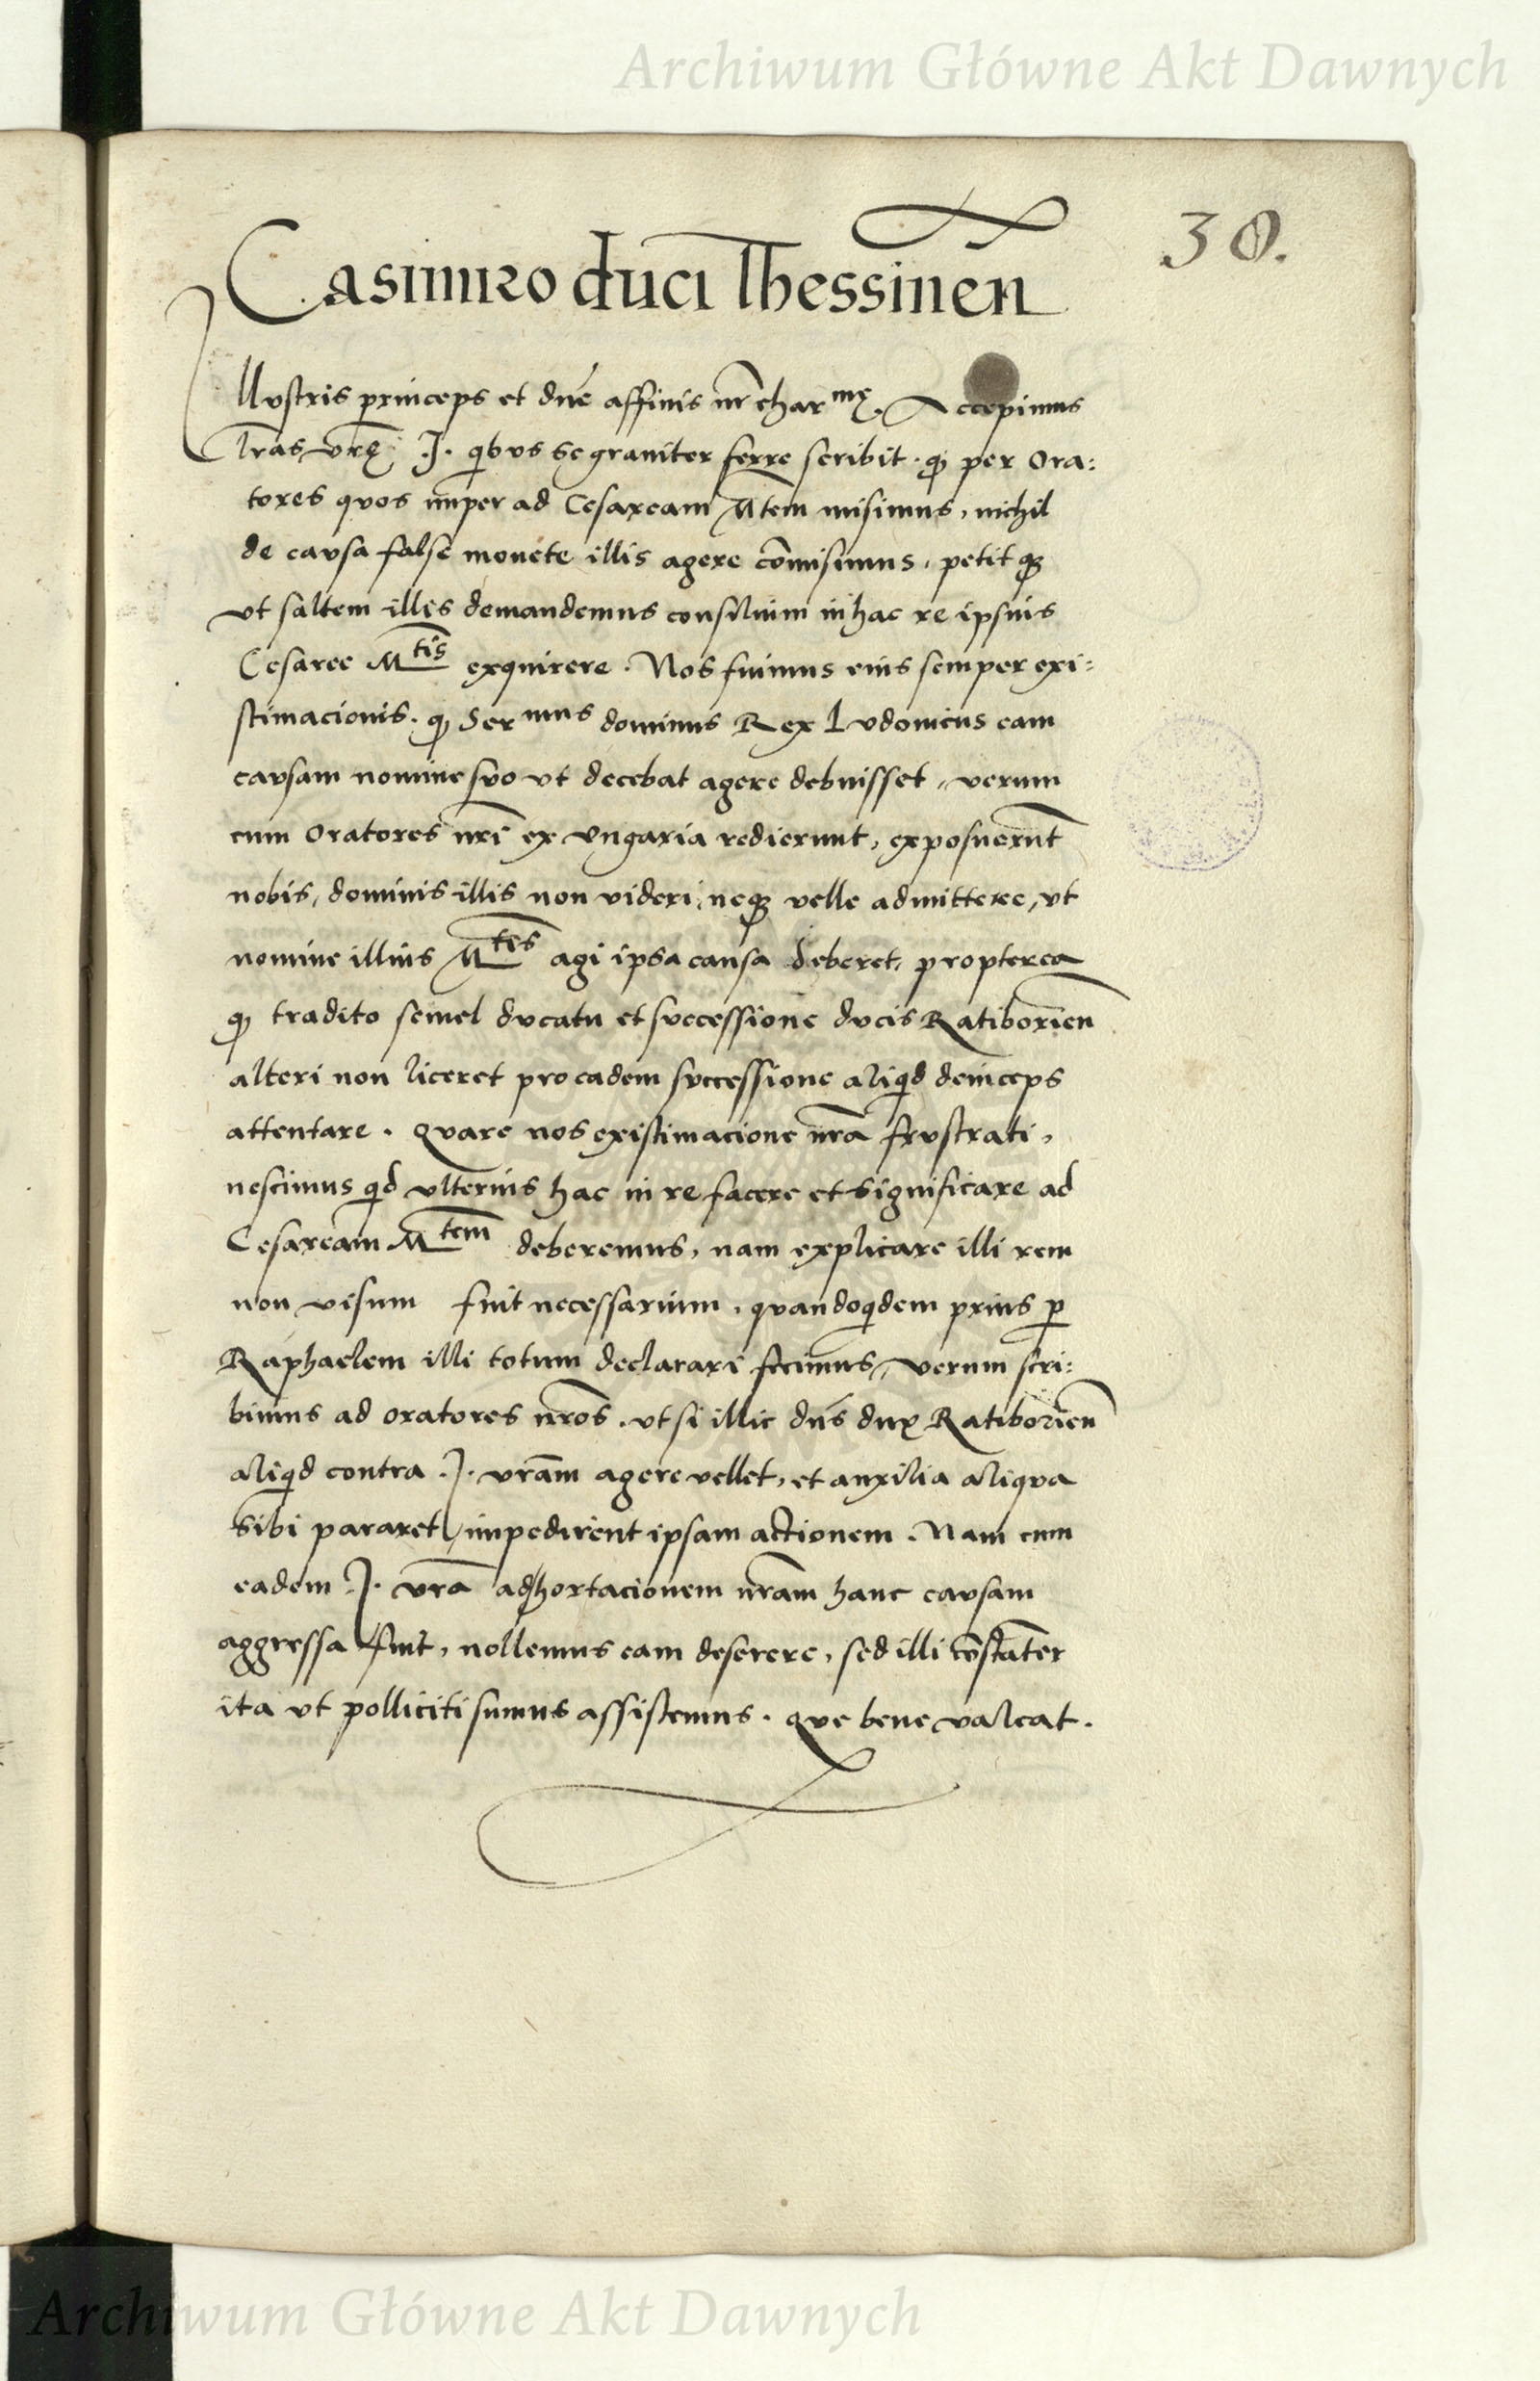 Archiwum Główne Akt Dawnych
38.
Casimiro duci Thessinen
Illustris princeps et dne affinis nr char me. Accepimus
lras vrę .J. qibus se graviter ferre scribit. qp per Ora:
tores quos nuper ad Cesaream Mtem misimus, nichil
de causa false monete illis agere comisimus, petitqz
vt saltem illis demandemus consilium in hac re ipsius
Cesaree Mtis exquirere. Nos fuimus eius semper exi:
stimacionis. qp Ser mus dominus Rex Ludovicus eam
causam nomine suo vt decebat agere debuisset, verum
cum Oratores nri ex Vngaria redierunt, exposuerunt
nobis, dominis illis non videri, neqz velle admittere, vt
nomine illius Mtis agi ipsa causa deberet, propterea
qp tradito semel ducatu et successione ducis Ratiborien
alteri non liceret pro eadem successione aliqid deinceps
attentare. Quare nos existimacione nra frustrati,
nescimus qid ulterius hac in re facere et significare ad
Cesaream Mtem deberemus, nam explicare illi rem
non visum fuit necessarium, quandoqidem prius p
Raphaelem illi totum declarari fecimus, verum scri:
bimus ad oratores nros. vt si illic dns dux Ratiborien
aliqid contra .J. vram agere vellet, et auxilia aliqua
sibi pararet, impedirent ipsam actionem. Nam cum
eadem .J. vra adhortacionem nram hanc causam
aggressa sint, nollemus eam deserere, sed illi constanter
ita vt polliciti sumus assistemus. que bene valeat.
Archiwum Główne Akt Dawnych